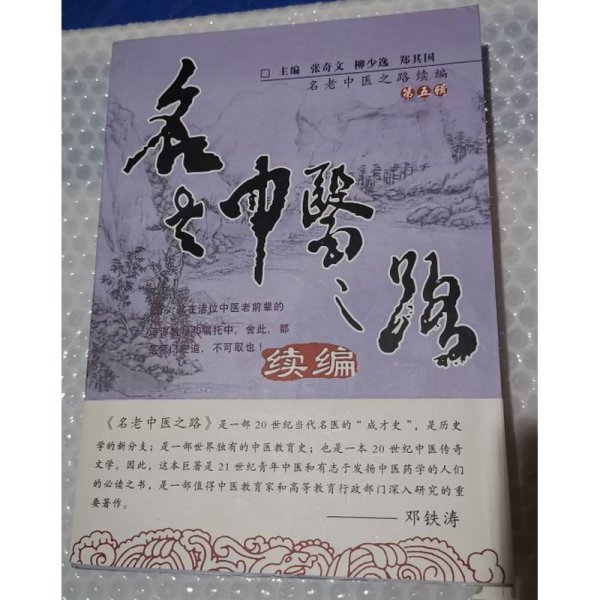 □ 主编 张奇文 柳少逸 郑其国
名老中医之路续编
第五辑
名老中醫之路
在诸位中医老前辈的
嘱托中，舍此，都
不可取也！
续编
《名老中医之路》是一部 20 世纪当代名医的“成才史”，是历史
学的新分支；是一部世界独有的中医教育史；也是一本 20 世纪中医传奇
文学。因此，这本巨著是 21 世纪青年中医和有志于发扬中医药学的人们
的必读之书，是一部值得中医教育家和高等教育行政部门深入研究的重
要著作。
——— 邓铁涛